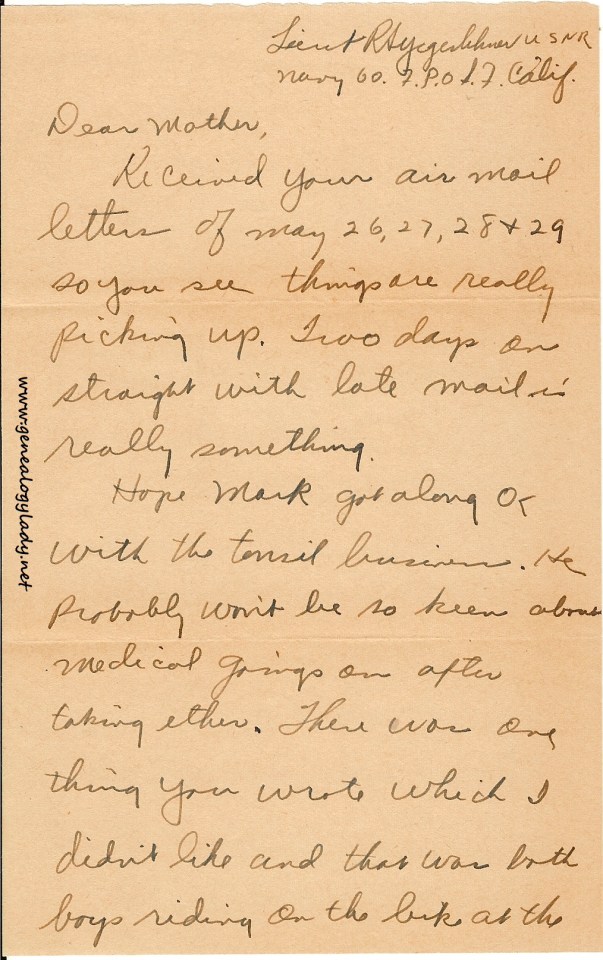 Lieut R H Yegerlehner USNR
Navy 60. F.P.O S.F. Calif.
Dear Mother,
Received your air mail
letters of May 26, 27, 28 + 29
so you see things are really
picking up. Two days on
straight with late mail is
really something.
Hope Mark got along OK
with the tonsil business. He
probably won't be so keen about
medical goings on after
taking ether. There was one
thing you wrote which I
didn't like and that was both
boys riding on the bike at the
www.genealogylady.net